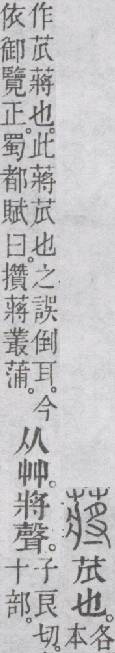 蔣 苽也。各本
作苽蔣也。此蔣苽也之誤倒耳。今
依御覽正。蜀都賦曰。攢蔣叢蒲。
从艸。將聲。子良切。
十部。